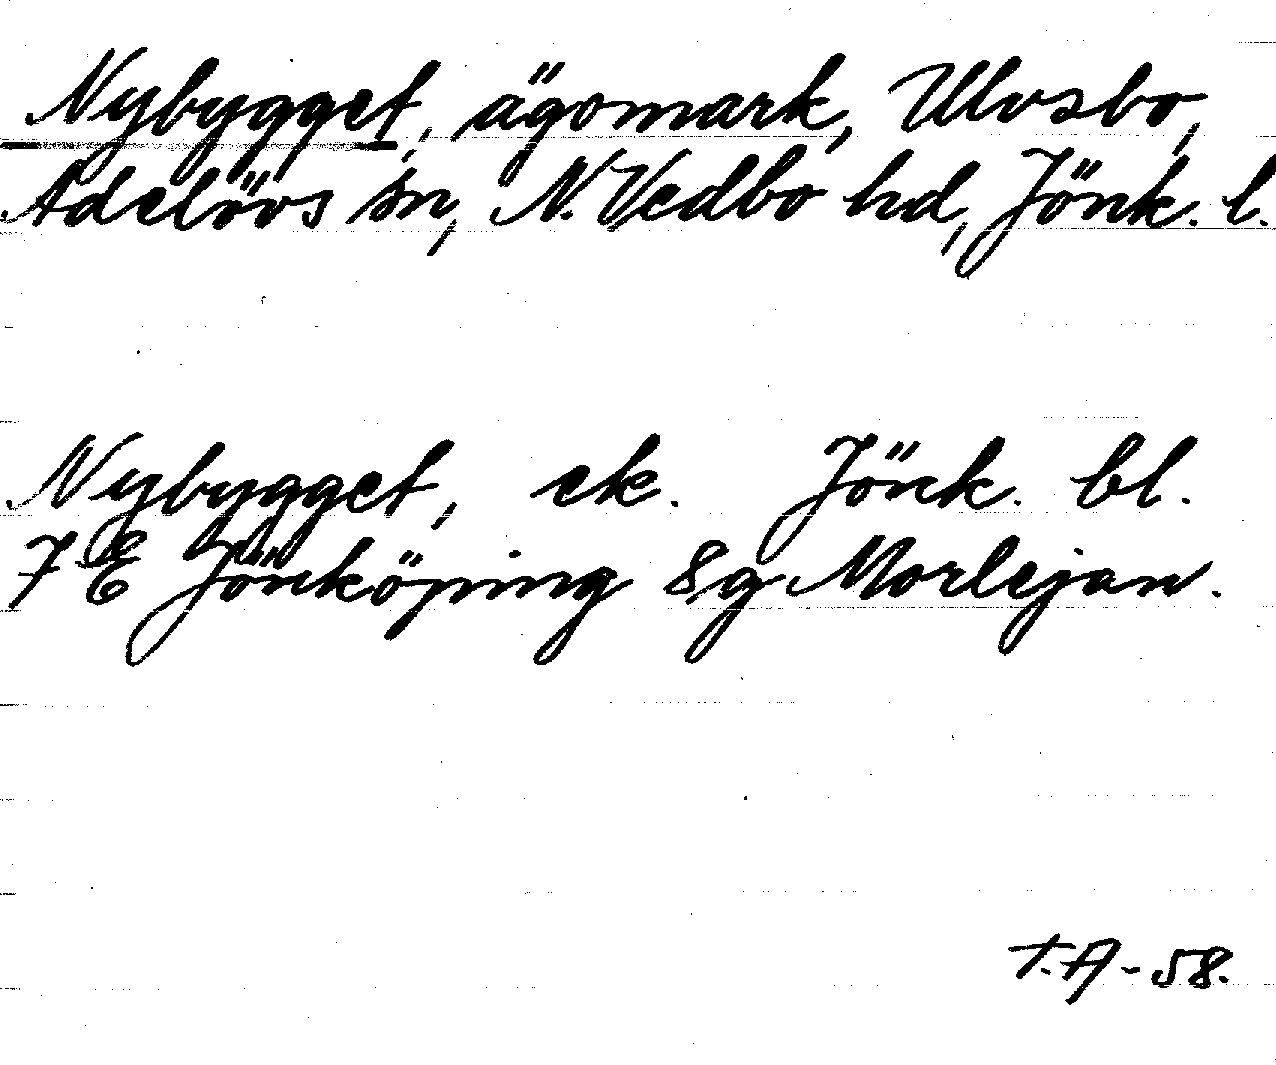 Nybygget, ägomark, Ulvsbo,
Adelövs sn, N. Vedbo hd, Jönk. l.
Nybygget, ek. Jönk. bl.
7 E Jönköping 8g Morlejan.
T.A-58.